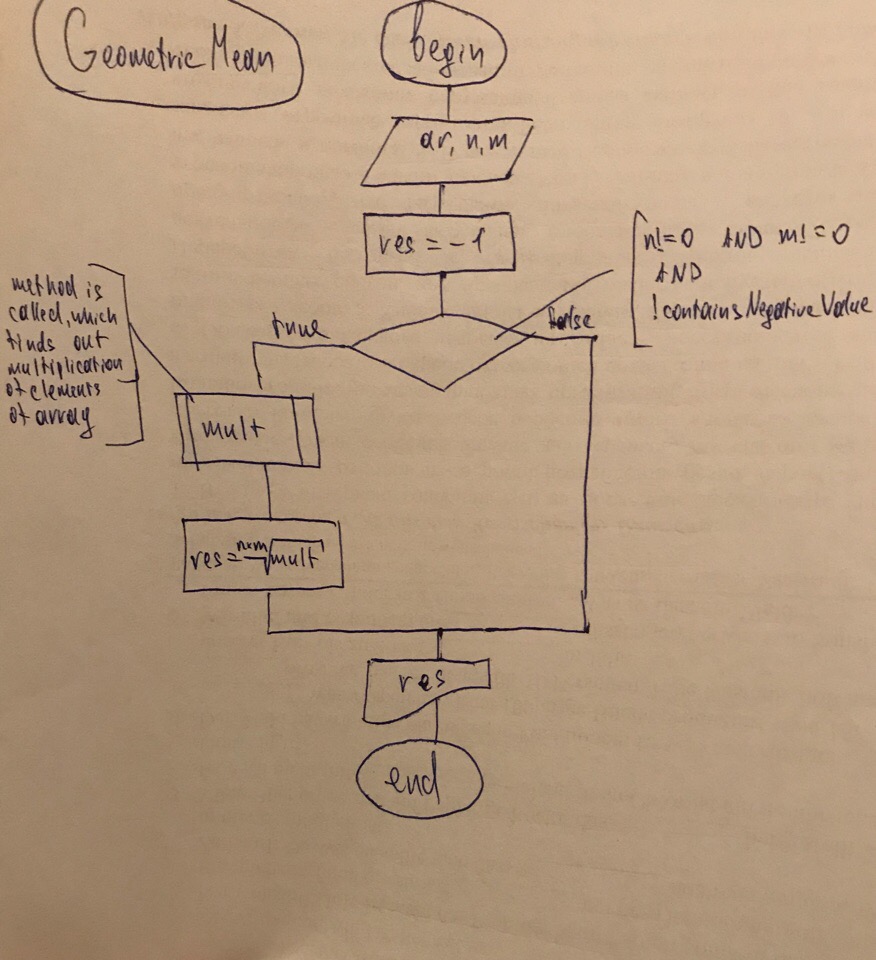 Geometric Mean
begin
ar, n, m
res = -1
n!=0 AND m!=0
AND
!containsNegativeValue
true
false
method is
called, which
finds out
multiplication
of elements
of array
mult
res = n*m√mult
res
end